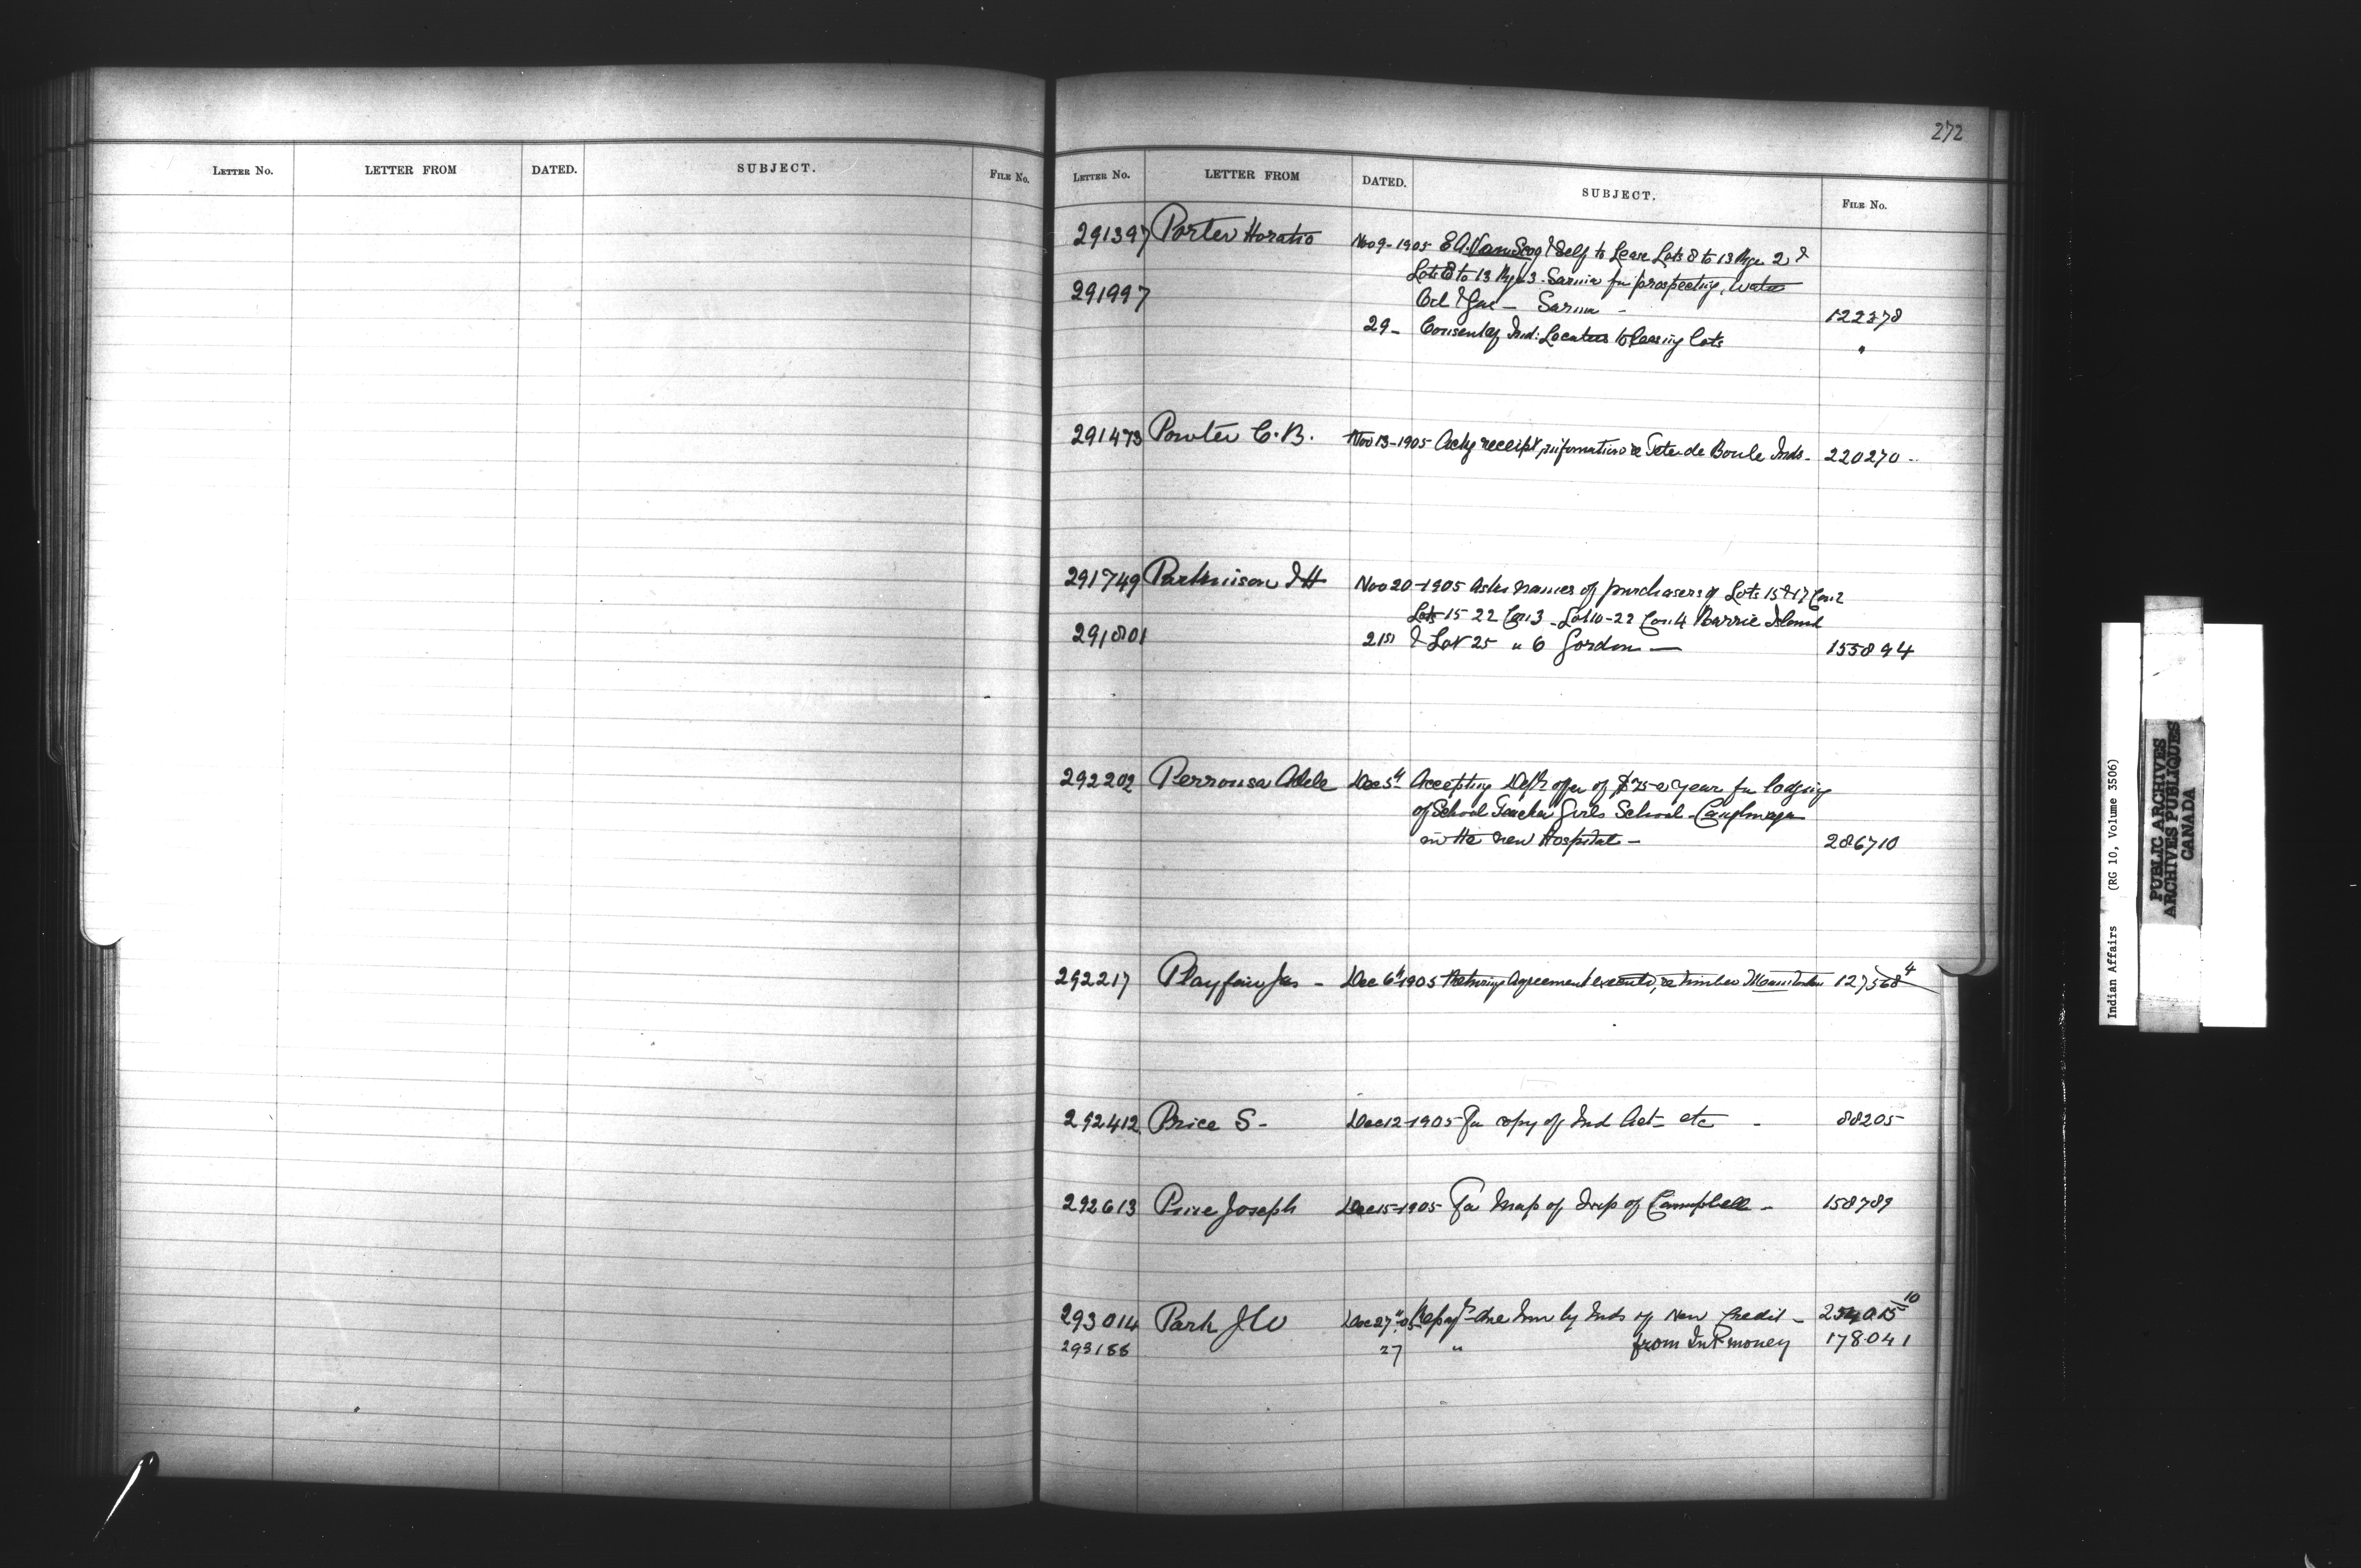 272
LETTER No. LETTER FROM DATED. SUBJECT. FILE No.
LETTER No. LETTER FROM DATED. SUBJECT. FILE No.
291397 Porter Horatio Nov 9-1905 E.A. & Self to Lease Lots 8 to 13 Rge 2 &
Lots 8 to 13 Rge 3 - Sarnia for prospecting, Water
291997 Oil & Gas - Sarnia - 122378
29- Consent of Ind: Locatees to leasing lots "
291473 Powter C. B. Nov 13-1905 Ackg receipt, information re Tete de Boule Inds - 220270 -
291749 Parkinson Nov 20-1905 Asks names of purchasers of Lots 15 & 17 Con 2
Lots 15-22 Con 3 - Lot 10-22 Con 4 Barrie Island
291801 21st & Lot 25 " 6 Gordon - 155894
292202 Perronsa Adele Dec 5th Accepting Dept offer of $75 a year for lodging
of School Teacher Girls School - Caughnawaga
in the new Hospital - 286710
292217 Playfair Jas - Dec 6th 1905 Returning Agreement executed, re timber Manitoulin 127568 4
292412 Price S - Dec 12-1905 For copy of Ind Act - etc - 88205
292613 Price Joseph Dec 15-1905 For Map of Twp of Campbell - 158789
293014 Park J W Dec 27th 05 due him by Inds of New Credit - 10
293188 27 " from Int money 178041
Indian Affairs (RG 10, Volume 3506)
PUBLIC ARCHIVES
ARCHIVES PUBLIQUES
CANADA